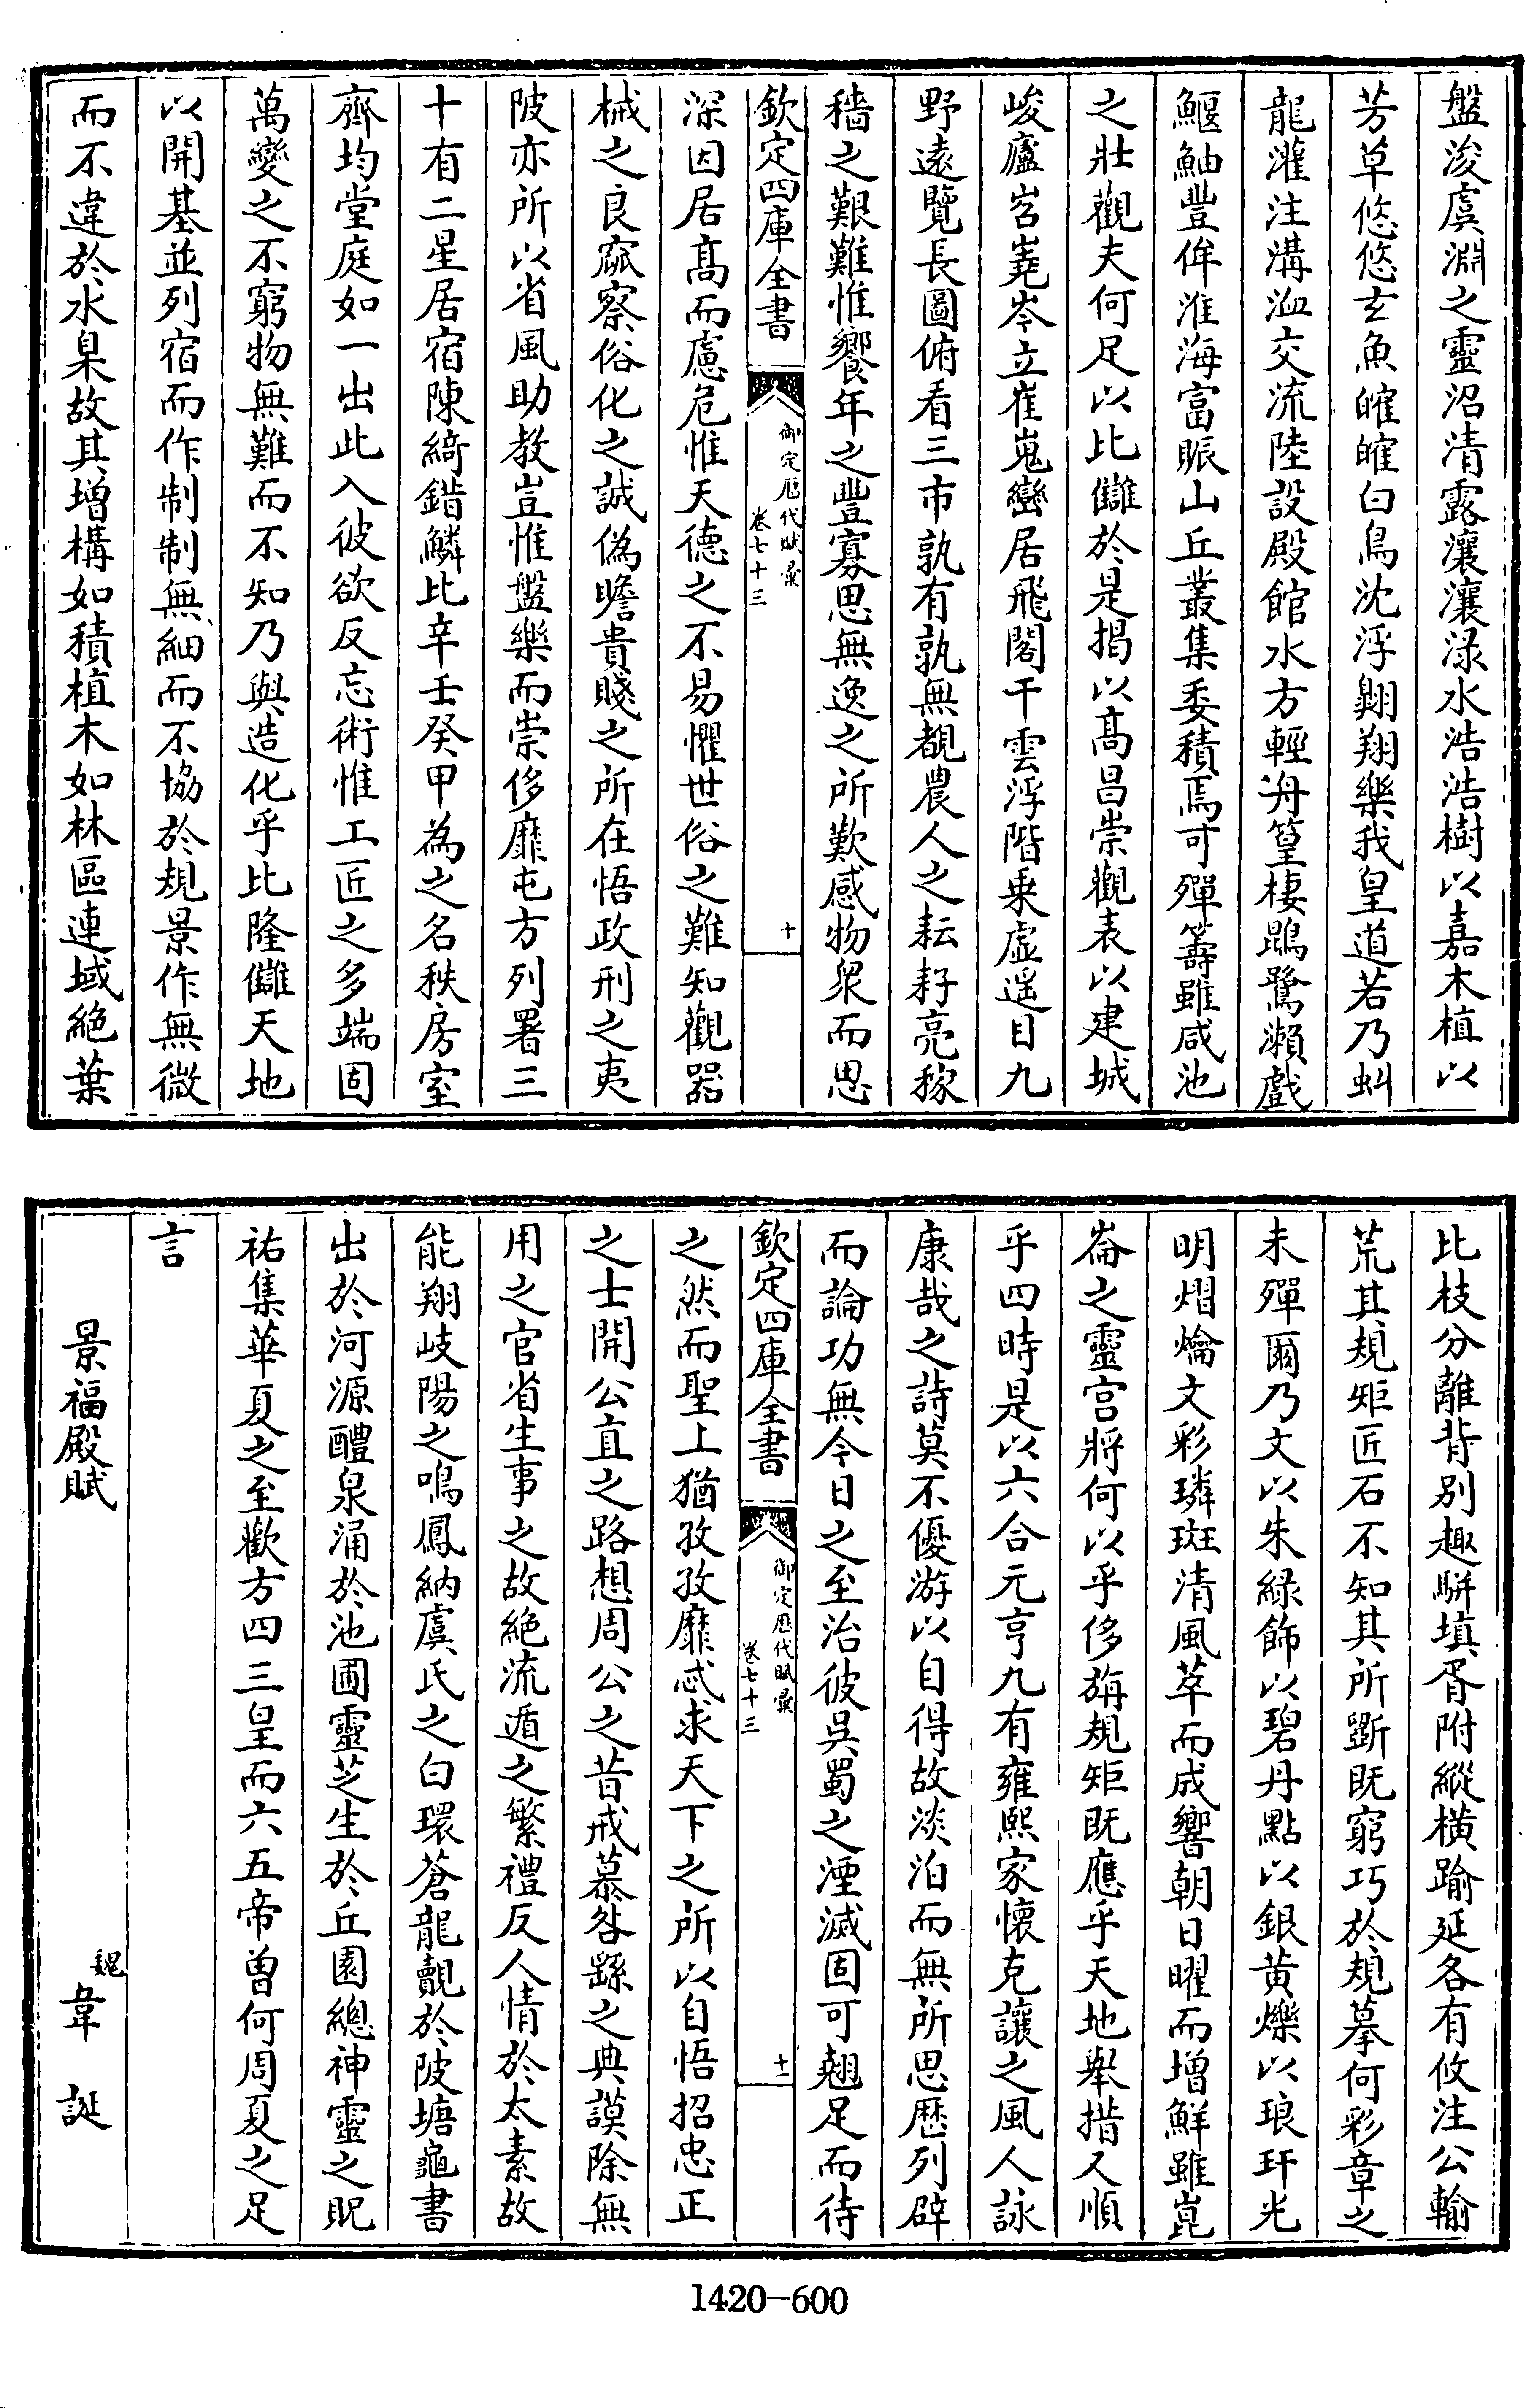 盤浚虞淵之靈沼清露瀼瀼渌水浩浩樹以嘉木植以
芳草悠悠玄魚皠皠白鳥沈浮翺翔樂我皇道若乃虯
龍灌注溝洫交流陸設殿館水方輕舟篁棲鵾鷺瀨戲
鰋鮋豐侔淮海富賑山丘叢集委積焉可殫籌雖咸池
之壯觀夫何足以比讎於是揭以髙昌崇觀表以建城
峻廬岧嶤岑立崔嵬巒居飛閣干雲浮階乗虛遥目九
野逺覽長圖俯看三市孰有孰無覩農人之耘耔亮稼
穡之艱難惟饗年之豐寡思無逸之所歎感物衆而思
欽定四庫全書
御定歴代賦彙
卷七十三
十
深因居髙而慮危惟天德之不易懼世俗之難知觀器
械之良窳察俗化之誠偽瞻貴賤之所在悟政刑之夷
陂亦所以省風助教豈惟盤樂而崇侈靡屯方列署三
十有二星居宿陳綺錯鱗比辛壬癸甲為之名秩房室
齊均堂庭如一出此入彼欲反忘術惟工匠之多端固
萬變之不窮物無難而不知乃與造化乎比隆讎天地
以開基並列宿而作制制無細而不協於規景作無微
而不違於水臬故其增構如積植木如林區連域絶葉
比枝分離背别趣駢填胥附縱横踰延各有攸注公輸
荒其規矩匠石不知其所斲既窮巧於規摹何彩章之
未殫爾乃文以朱緑飾以碧丹點以銀黄爍以琅玕光
明熠爚文彩璘斑清風萃而成響朝日曜而增鮮雖崑
崙之靈宫將何以乎侈旃規矩既應乎天地舉措又順
乎四時是以六合元亨九有雍熙家懷克讓之風人詠
康哉之詩莫不優游以自得故淡泊而無所思歴列辟
而論功無今日之至治彼吴蜀之湮滅固可翹足而待
欽定四庫全書
御定歴代賦彙
卷七十三
十一
之然而聖上猶孜孜靡忒求天下之所以自悟招忠正
之士開公直之路想周公之昔戒慕咎繇之典謨除無
用之官省生事之故絶流遁之繁禮反人情於太素故
能翔岐陽之鳴鳳納虞氏之白環蒼龍覿於陂塘龜書
出於河源醴泉涌於池圃靈芝生於丘園總神靈之貺
祐集華夏之至歡方四三皇而六五帝曽何周夏之足
言
景福殿賦
魏
韋誕
1420-600